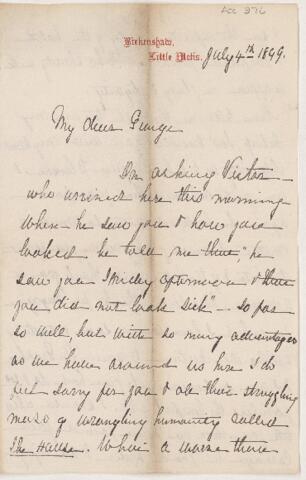 Acc 376
Birkenshaw,
Little Metis.
July 4th 1899.
My dear George
On asking Victor
who arrived here this morning
where he saw you & how you
looked he told me that "he
saw you Friday afternoon & that
you did not look sick" - so far
so well, but with so many advantages
as we have around us here I do
feel sorry for you & all that struggling
mass of wrangling humanity called
The House. What a worse than